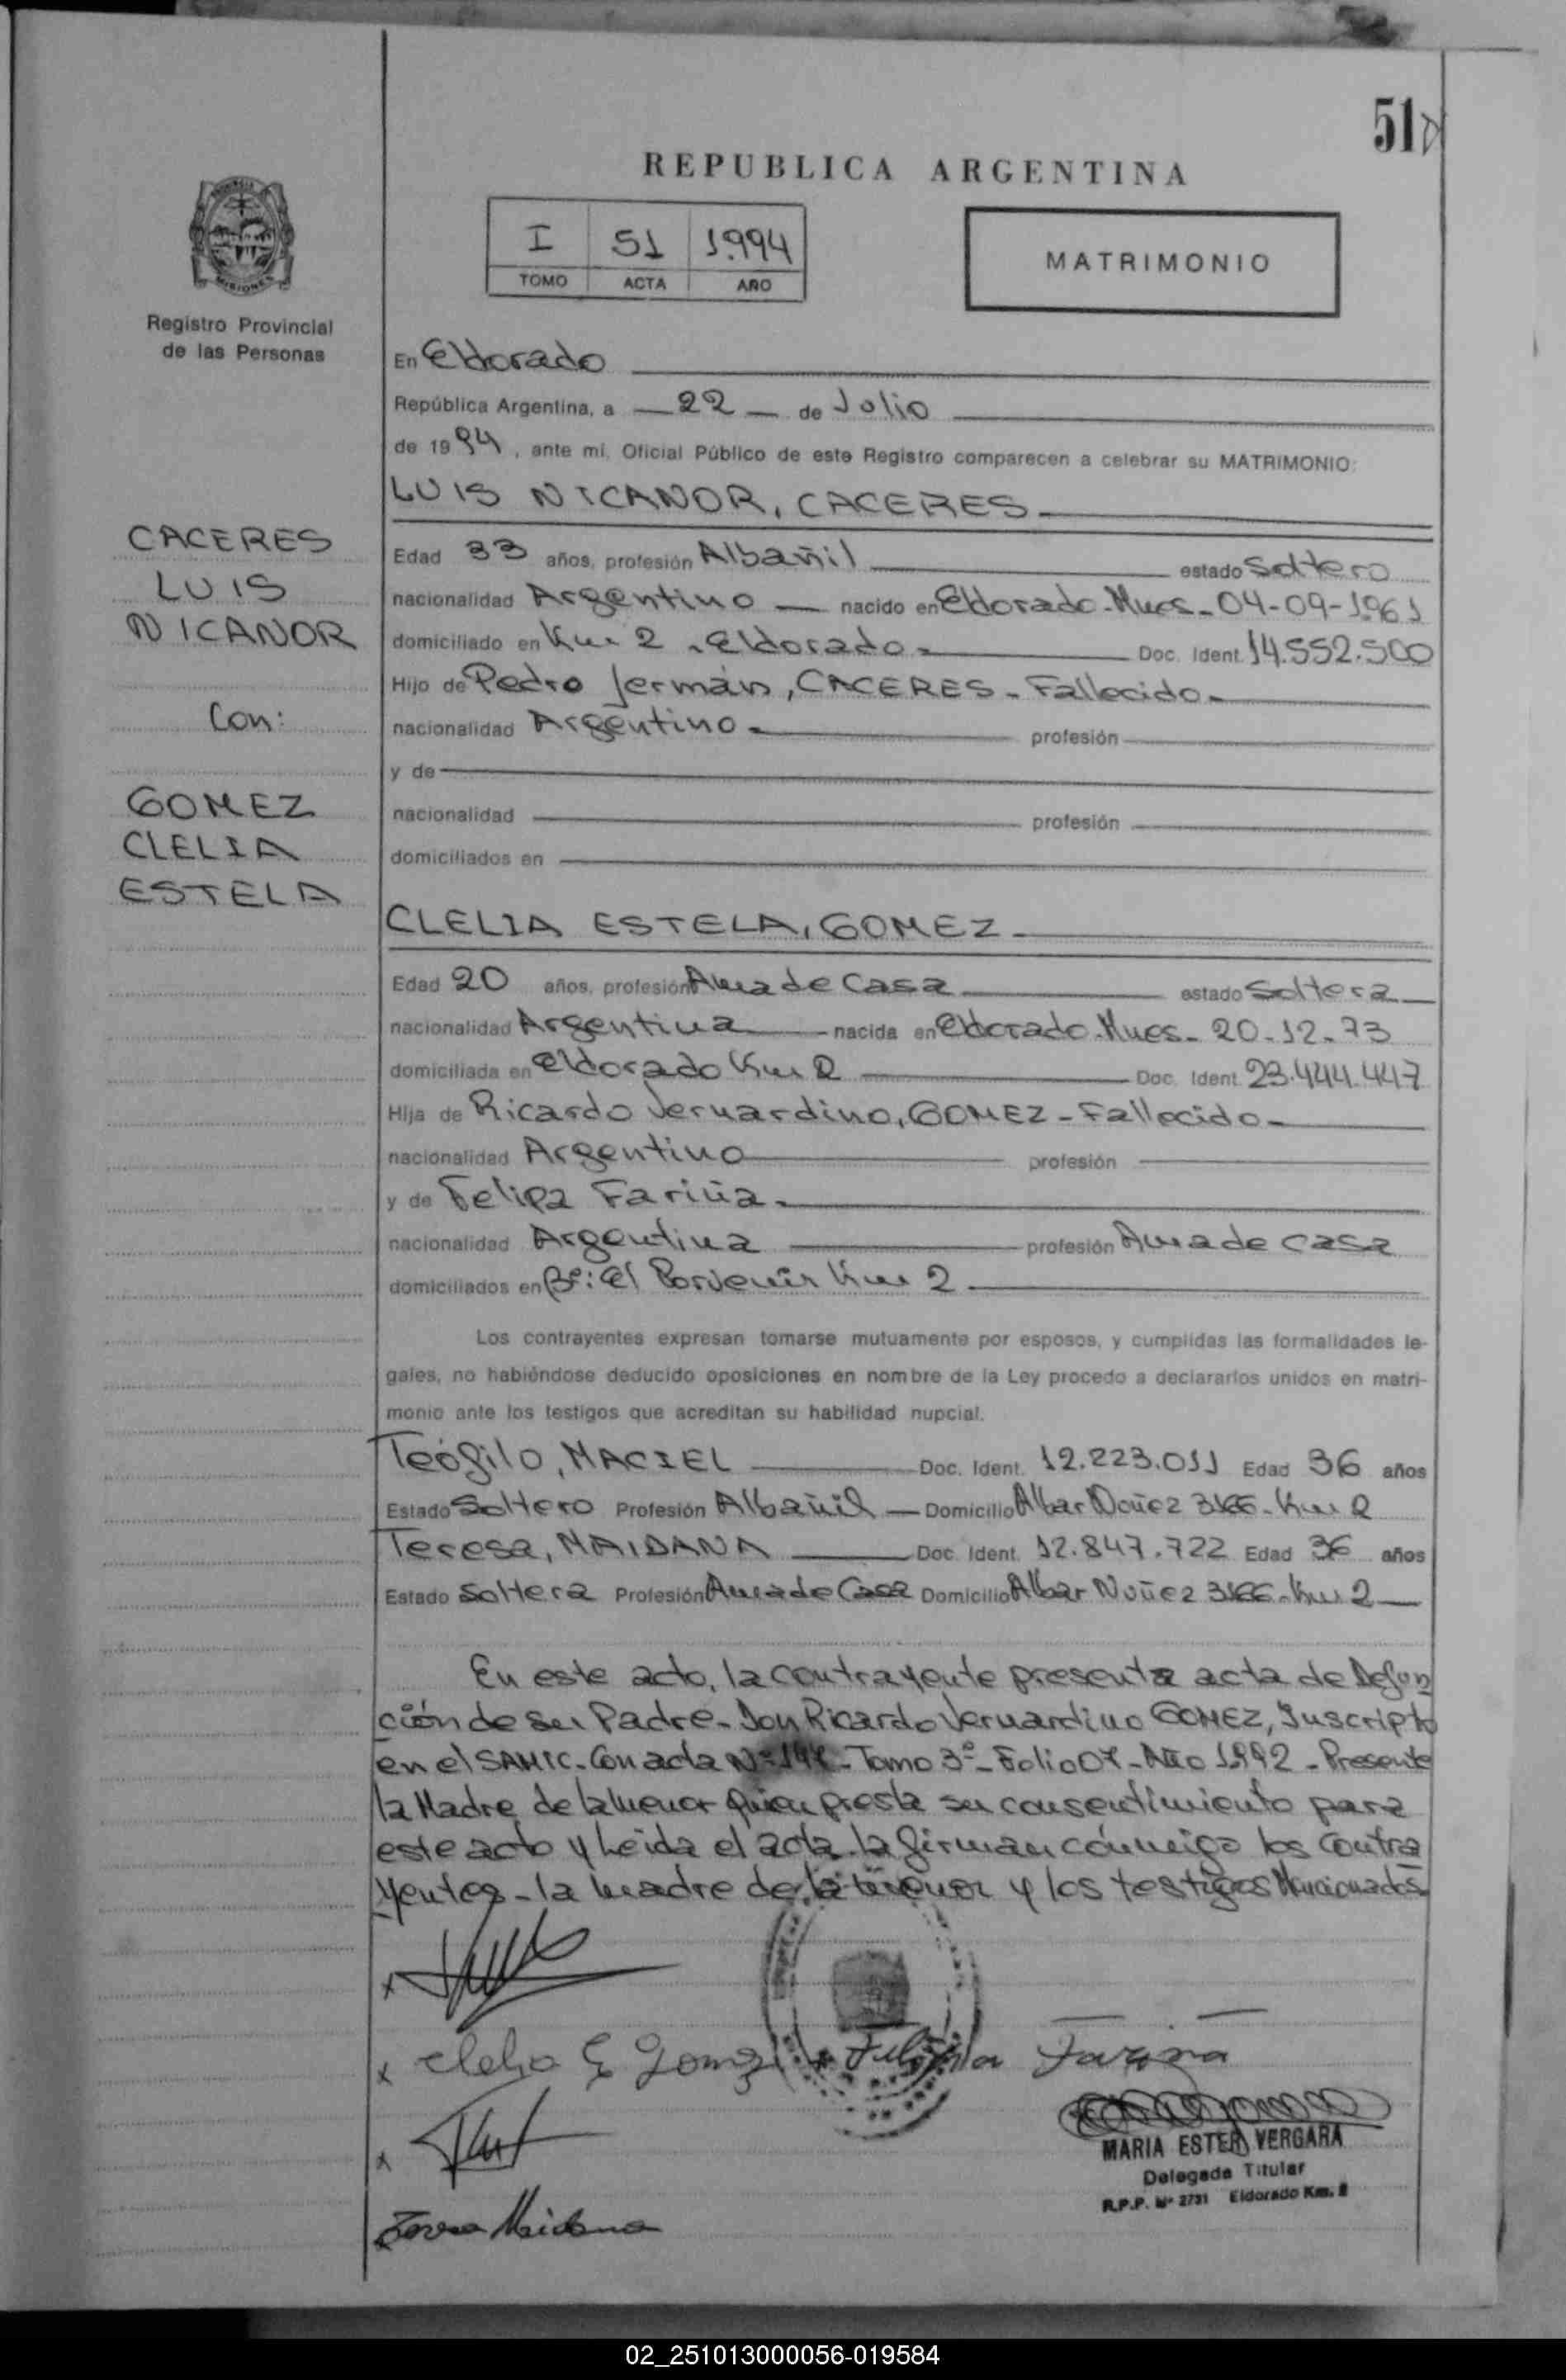 51
REPUBLICA ARGENTINA
I 51 1994
TOMO ACTA AÑO
MATRIMONIO
PROVINCIA DE
MISIONES
Registro Provincial
de las Personas
En Eldorado
República Argentina, a 22 de Julio
de 1994, ante mí, Oficial Público de este Registro comparecen a celebrar su MATRIMONIO:
LUIS NICANOR, CACERES
CACERES
LUIS
NICANOR
Con:
GOMEZ
CLELIA
ESTELA
Edad 33 años, profesión Albañil estado Soltero
nacionalidad Argentino nacido en Eldorado-Mnes- 04-09-1961
domiciliado en Km 2 - Eldorado- Doc. Ident. 14.552.500
Hijo de Pedro Jermán, CACERES - Fallecido-
nacionalidad Argentino- profesión
y de
nacionalidad profesión
domiciliados en
CLELIA ESTELA, GOMEZ-
Edad 20 años, profesión Ama de Casa estado Soltera
nacionalidad Argentina nacida en Eldorado-Mnes- 20-12-73
domiciliada en Eldorado Km 2 Doc. Ident. 23.444.447
Hija de Ricardo Vernardino, GOMEZ - Fallecido-
nacionalidad Argentino profesión
y de Felipa Fariña-
nacionalidad Argentina profesión Ama de Casa
domiciliados en Bº: El Porvenir Km 2
Los contrayentes expresan tomarse mutuamente por esposos, y cumplidas las formalidades le-
gales, no habiéndose deducido oposiciones en nombre de la Ley procedo a declararlos unidos en matri-
monio ante los testigos que acreditan su habilidad nupcial.
Teófilo, MACIEL Doc. Ident. 12.223.011 Edad 36 años
Estado Soltero Profesión Albañil Domicilio Albar Nuñez 3166- Km 2
Teresa, MAIDANA Doc. Ident. 12.847.722 Edad 36 años
Estado Soltera Profesión Ama de Casa Domicilio Albar Nuñez 3166-Km 2
En este acto, la contrayente presenta acta de Defun
ción de su Padre- Don Ricardo Vernardino GOMEZ, Inscripto
en el SAMIC- Con acta Nº - Tomo 3º- Folio - Año 1992 - Presente
la Madre de la menor quien presta su consentimiento para
este acto y Leida el acta. la firman conmigo los Contra
yentes- la madre de la menor y los testigos Mencionados.
x
x Clelia E Gomez x Felipa Fariña
x
Teresa Maidana
MARIA ESTER VERGARA
Delegada Titular
R.P.P. Nº 2731 Eldorado Km. 2
02_251013000056-019584